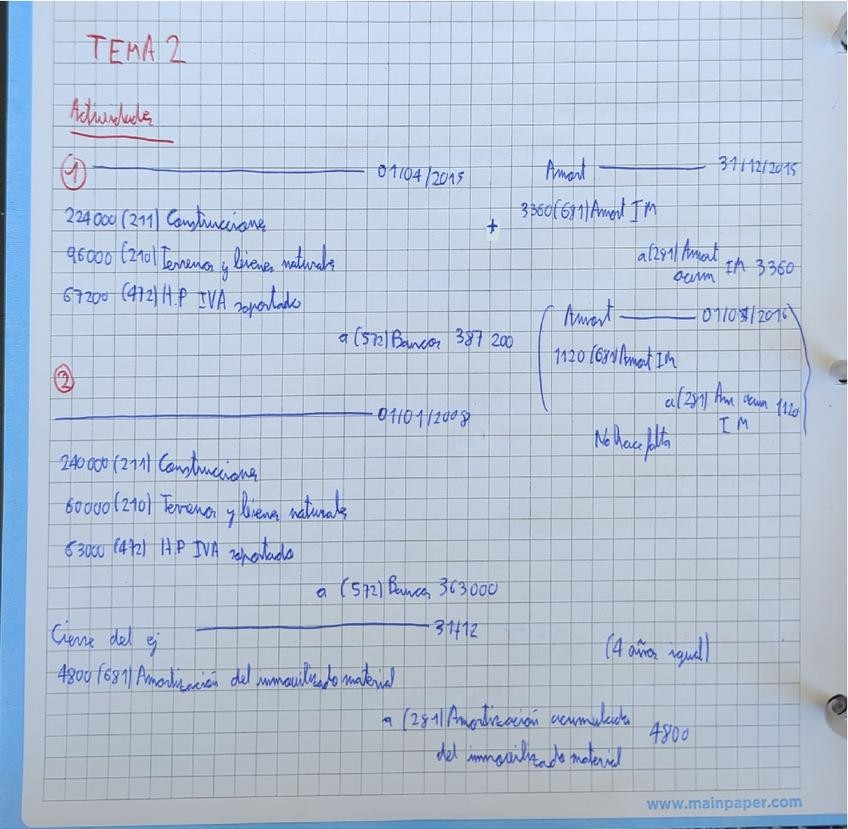 TEMA 2
Actividades
1 01/04/2015
224000 (211) Construcciones
96000 (210) Terrenos y bienes naturales
67200 (472) H.P IVA soportado
a (572) Bancos 387 200
+
Amort 31/12/2015
3360 (681) Amort IM
a (281) Amort
acum IM 3360
Amort 01/04/2016
1120 (681) Amort IM
a (281) Am acum 1120
IM
No hace falta
2
01/01/2008
240000 (211) Construcciones
60000 (210) Terrenos y bienes naturales
63000 (472) H.P IVA soportado
a (572) Bancos 363000
Cierre del ej 31/12
(4 años igual)
4800 (681) Amortización del inmovilizado material
a (281) Amortización acumulada 4800
del inmovilizado material
www.mainpaper.com